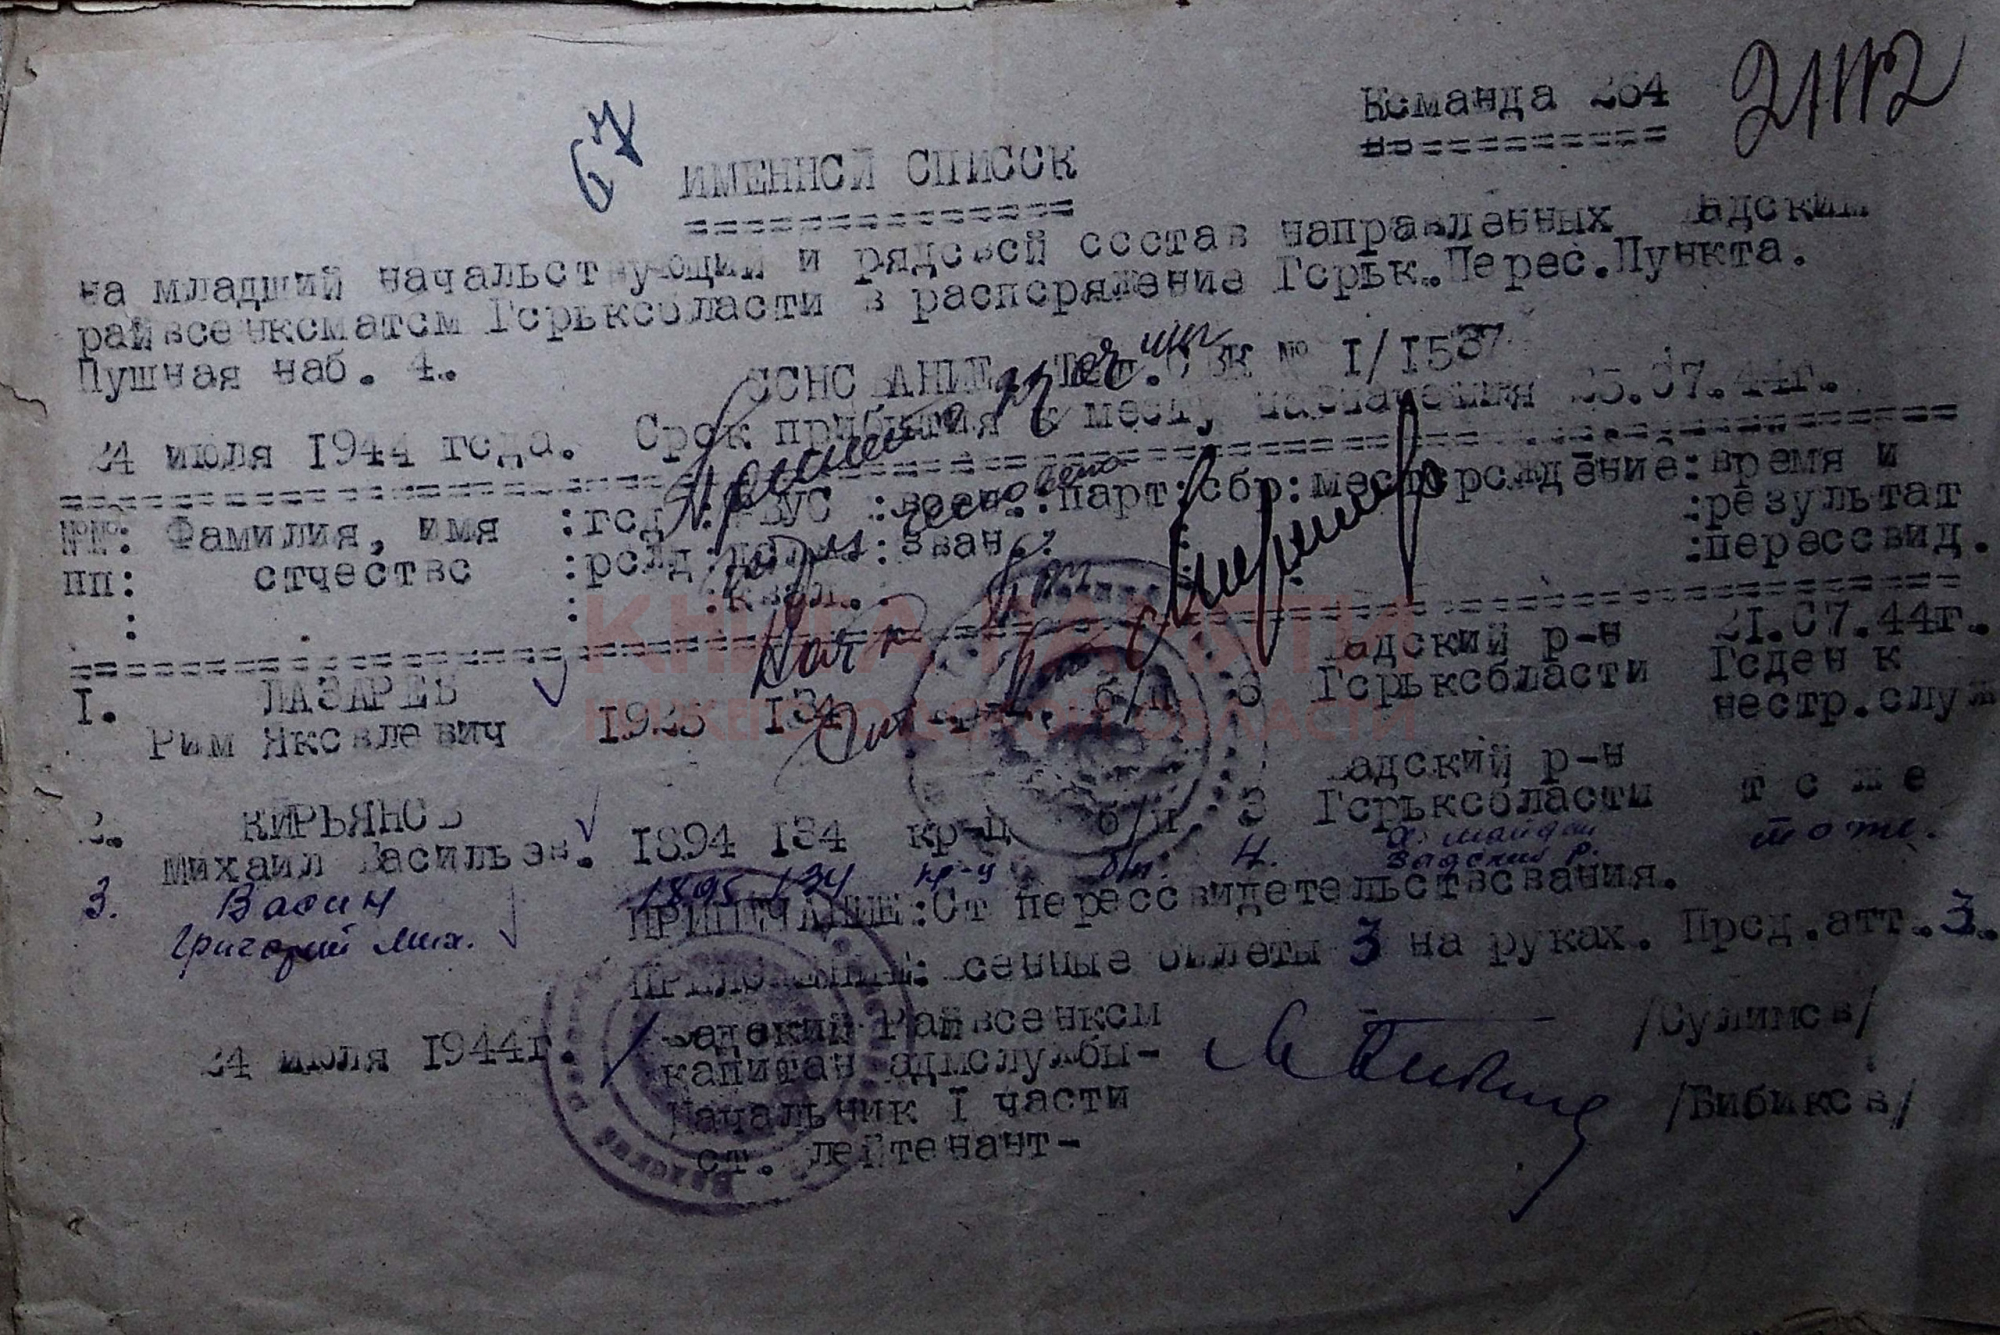 Команда 264
21112
67
ИМЕННОЙ СПИСОК
на младший начальствующий и рядовой состав направленных Вадским
райвоенкоматом Горькобласти в распоряжение Горьк.Перес.Пункта.
Пушная наб. 4.
ОСНОВАНИЕ № I/I537
24 июля 1944 года. Срок прибытия к месту назначения 25.07.44г.
№№: Фамилия, имя :год : ВУС :воен.:парт:сбр:место рождение:время и
пп: отчество :рожд:должн.:зван. :результат
: :квал. :пересвид.
I. ЛАЗАРЕВ Вадский р-н 21.07.44г.
Рим Яковлевич 1925 134 б/п 6 Горькобласти Годен к
нестр.служ
2. КИРЬЯНОВ Вадский р-н то же
Михаил Васильев. 1894 134 кр-ц б/п 3 Горькобласти
3. Васин 1895 134 кр-ц б/п. 4. Майдан тоже.
Григорий Мих. Вадский р.
ПРИМЕЧАНИЕ:От переосвидетельствования.
ПРИЛОЖЕНИЕ: военные билеты 3 на руках. Прод.атт.3.
24 июля 1944г. Вадский Райвоенком
капитан адмслужбы- /Сулимов/
Начальник I части
ст. лейтенант- /Бибиков/
КНИГА ПАМЯТИ
НИЖЕГОРОДСКОЙ ОБЛАСТИ